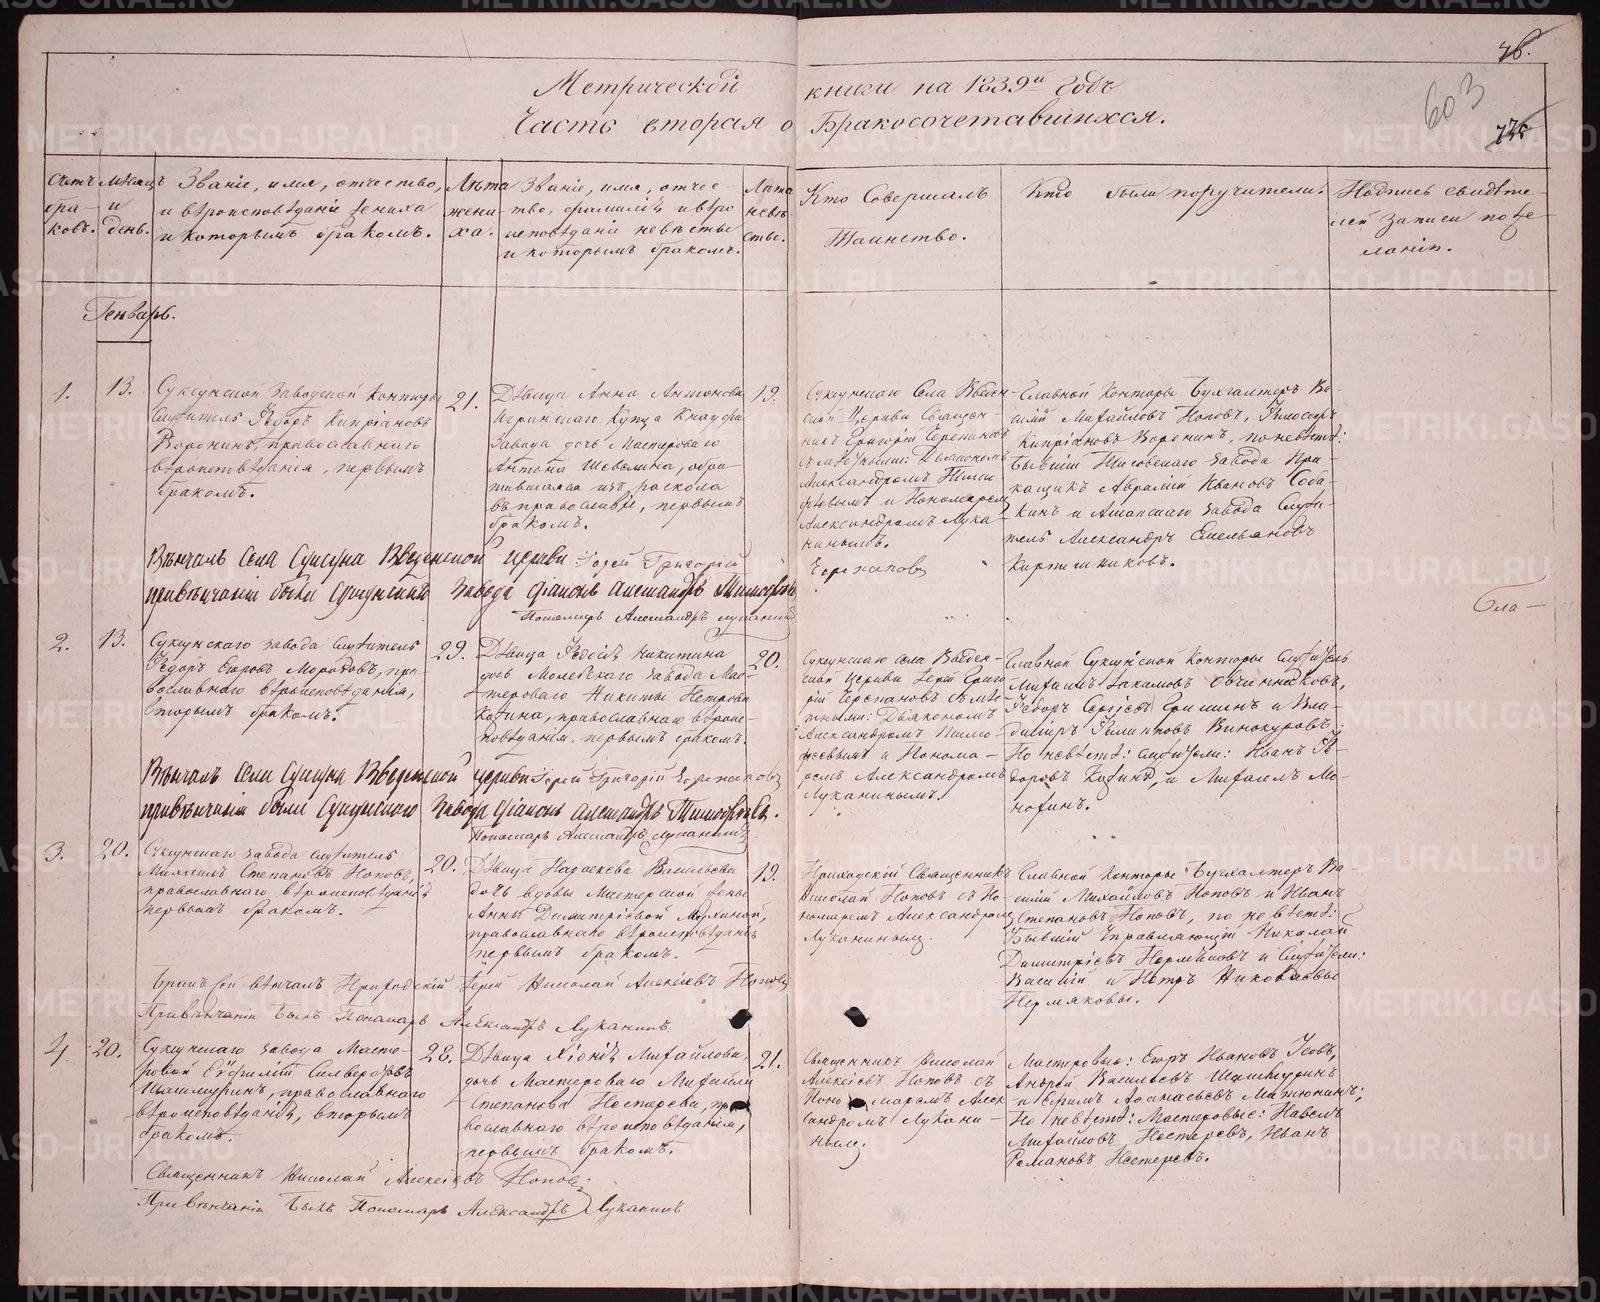 Метрической книги на 1839й годъ
Часть вторая о Бракосочетавшихся.
76.
603
Счетъ браковъ.
Мѣсяцъ и день.
Званіе, имя, отчество,
и вѣроисповѣданіе жениха
и которымъ бракомъ.
Лѣта жениха.
Званіе, имя, отчес-
тво, фамилія и вѣро
исповѣданіе невѣсты
и которымъ бракомъ.
Лѣта невѣсты.
Кто Совершалъ
Таинство.
Кто были поручители.
Подпись свидѣте-
лей записи по же-
ланію.
Генварь.
1.
13.
Суксунской Заводской Конторы
Служитель Ѳедоръ Кипріановъ
Воронинъ, православнаго
вѣроисповѣданія, первымъ
бракомъ.
21.
Дѣвица Анна Антонова
Иргинскаго Купца Кнауфа
Завода дочь Мастероваго
Антона Шевалина, обра-
тившаяся изъ раскола
въ православіе, первымъ
бракомъ.
19.
Суксунскаго Села Введен-
ской Церкви Священ-
никъ Григорій Черепановъ
съ мѣстными: Діакономъ
Александромъ Тимо
фѣевымъ и Пономаремъ
Александромъ Лука-
нинымъ.
Черепановъ
Главной Конторы Бухгалтеръ Ва-
силій Михайловъ Поповъ,
Кипріановъ Воронинъ, по невѣстѣ:
бывшій Тисовскаго завода При-
кащикъ Авраамій Ивановъ Соба-
кинъ и Ашапскаго завода Служи-
тель Александръ Емельяновъ
Кирпишниковъ.
Вѣнчалъ Села Суксуна Введенской церкви Іерей Григорій
при вѣнчаніи были Суксунскаго Завода Діаконъ Александръ Тимофѣевъ
Пономарь Александръ Луканинъ
Бла-
2.
13.
Суксунскаго завода служитель
Ѳедоръ Егоровъ Морозовъ, пра-
вославнаго вѣроисповѣданія,
вторымъ бракомъ.
29.
Дѣвица Ѳедосія Никитина
дочь Молебскаго Завода Мас-
тероваго Никиты Петрова
Кожина, православнаго вѣроис-
повѣданія, первымъ бракомъ.
20.
Суксунскаго села Введен-
ской церкви Іерей Григо
рій Черепановъ съ мѣс
тными: Діакономъ
Александромъ Тимо-
фѣевымъ и Понома-
ремъ Александромъ
Луканинымъ.
Главной Суксунской Конторы Служитель
Михаилъ Овчинниковъ,
Ѳедоръ Сергіевъ Гришинъ и Вла-
диміръ Филиповъ Винокуровъ,
По невѣстѣ: служители: Иванъ Ѳе-
доровъ Кожинъ, и Михаилъ Мо-
Вѣнчалъ Села Суксуна Введенской церкви Іерей Григорій Черепановъ
при вѣнчаніи были Суксунскаго Завода Діаконъ Александръ Тимофѣевъ.
Пономарь Александръ Луканинъ
3.
20.
Суксунскаго завода служитель
Михаилъ Степановъ Поповъ,
православнаго вѣроисповѣданія
первымъ бракомъ.
20.
Дѣвица Параскева Васильева
дочь вдовы Мастерской жены
Анны Димитріевой Мухиной,
православнаго вѣроисповѣданія
первымъ бракомъ.
19.
Приходскій Священникъ
Николай Поповъ съ По-
номаремъ Александромъ
Луканинымъ.
Главной Конторы Бухгалтеръ Ва-
силій Михайловъ Поповъ и Иванъ
Степановъ Поповъ, по невѣстѣ:
Бывшій Управляющій Николай
Димитріевъ Пермяковъ и Служители:
Василій и Петръ Николаевы
Пермяковы.
Бракъ сей вѣнчалъ Приходскій Іерей Николай Алексіевъ Поповъ
При вѣнчаніи былъ Пономарь Александръ Луканинъ.
4.
20.
Суксунскаго завода Масте-
ровой Евфимій Сильверстовъ
православнаго
вѣроисповѣданія, вторымъ
бракомъ.
28.
Дѣвица Хіонія Михайлова,
дочь Мастероваго Михайла
Степанова Нестерова, пра-
вославнаго вѣроисповѣданія,
первымъ бракомъ.
21.
Священникъ Николай
Алексіевъ Поповъ съ
Пономаремъ Алек
сандромъ Лукани-
нымъ.
Мастеровые: Егоръ Ивановъ Усовъ,
Андрей Васильевъ
и Ефимъ Аѳанасьевъ Матюнинъ;
По невѣстѣ: Мастеровые: Павелъ
Михайловъ Нестеровъ, Иванъ
Романовъ Нестеровъ.
Священникъ Николай Алексіевъ Поповъ.
При вѣнчаніи былъ Пономарь Александръ Луканинъ
METRIKI.GASO-URAL.RU